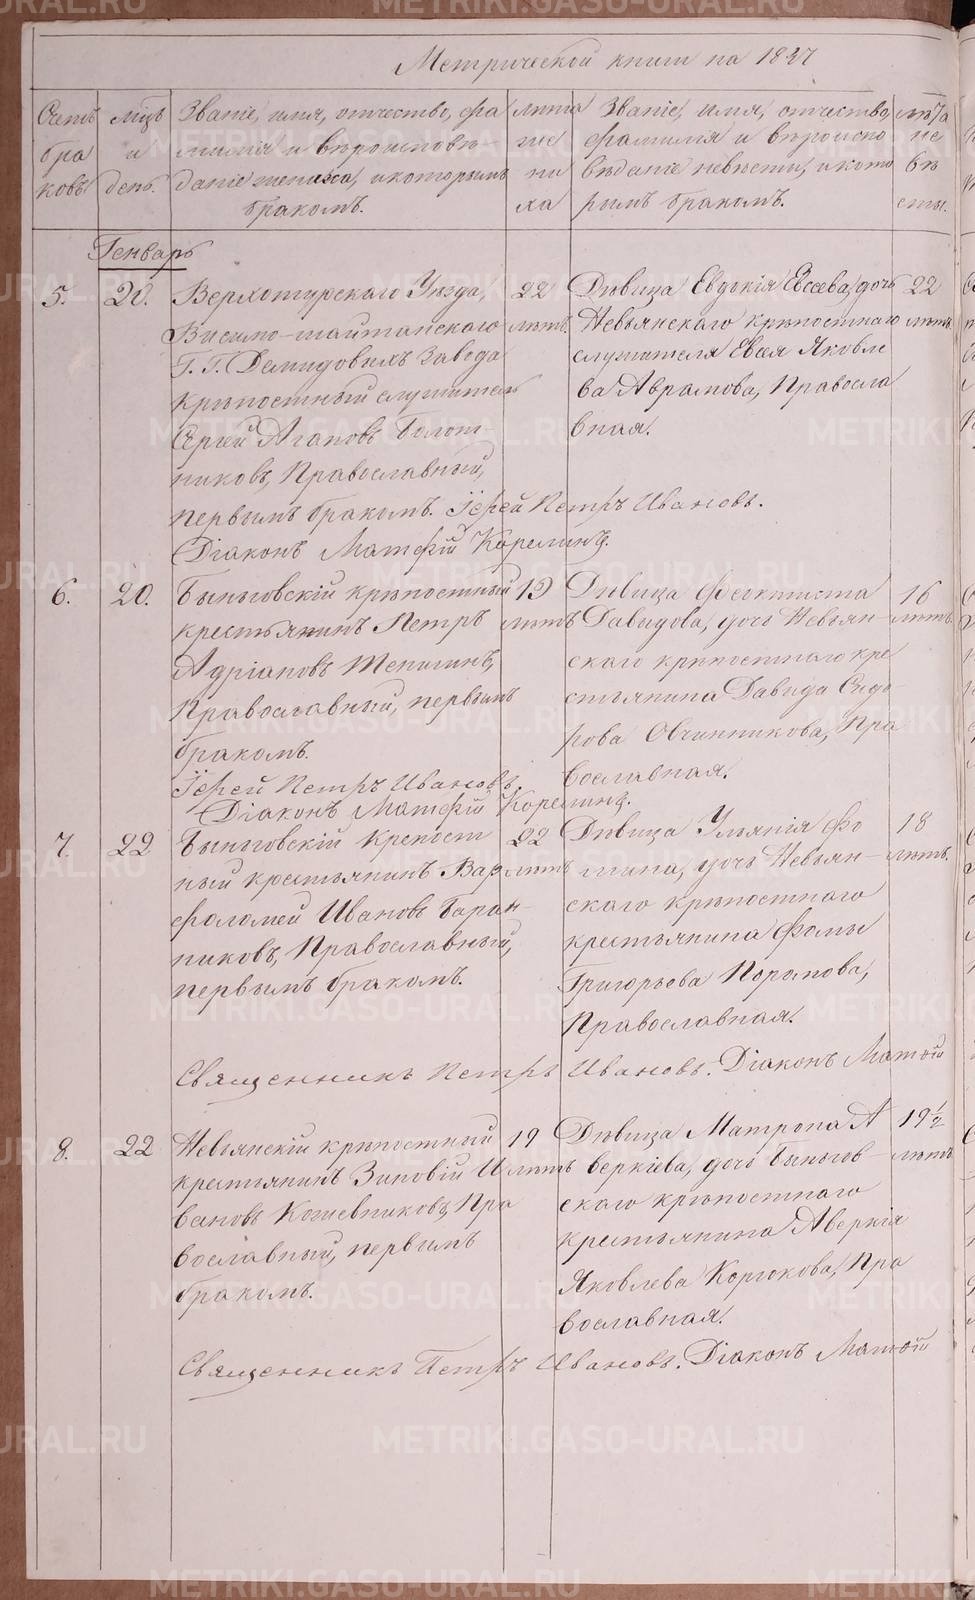 Метрической книги на 1847
Счетъ бра ковъ
мѣцъ и день.
Званіе, имя, отчество, фа милія и вѣроисповѣ- даніе жениха, и которымъ бракомъ.
лѣта же ни ха
Званіе, имя, отчество, фамилія и вѣроиспо вѣданіе невѣсты, и кото рымъ бракомъ.
лѣта не вѣ сты.
Генварь
5.
20.
Верхотурскаго Уѣзда,
Висимо-шайтанскаго
Г.Г. Демидовыхъ Завода
крѣпостный служитель
Сергей Агаповъ Болот-
никовъ, Православный,
первымъ бракомъ. Іерей Петръ Ивановъ.
Діаконъ Матфій Корелинъ.
22
лѣтъ.
Дѣвица Евдокія Евсеева, дочь
Невьянскаго крѣпостнаго
служителя Евсея Яковле
ва Аврамова, Правосла
вная.
22
лѣтъ.
6.
20.
Быньговскій крѣпостный
крестьянинъ Петръ
Адріановъ Шепигинъ,
Православный, первымъ
бракомъ.
Іерей Петръ Ивановъ.
Діаконъ Матфій Корелинъ.
19
лѣтъ
Дѣвица Феоктиста
Давидова, дочь Невьян-
скаго крѣпостнаго кре
стьянина Давида Сидо
рова Овчинникова, Пра
вославная.
16
лѣтъ.
7.
22
Быньговскій Крепост
ный крестьянинъ Вар
фоломей Ивановъ Баран-
никовъ, Православный,
первымъ бракомъ.
22
лѣтъ
Дѣвица Уліянія Фо
мина, дочь Невьян-
скаго крѣпостнаго
крестьянина Фомы
Григорьева
Православная.
18
лѣтъ.
Священникъ Петръ Ивановъ. Діаконъ Матфій
8.
22
Невьянскій крѣпостный
крестьянинъ Зиновій И
вановъ Кожевниковъ, Пра
вославный, первымъ
бракомъ.
19
лѣтъ
Дѣвица Матрона А
веркіева, дочь Быньгов-
скаго крѣпостнаго
крестьянина Аверкія
Яковлева Корюкова, Пра
вославная.
19 1/2
лѣтъ
Священникъ Петръ Ивановъ. Діаконъ Матфій
METRIKI.GASO-URAL.RU